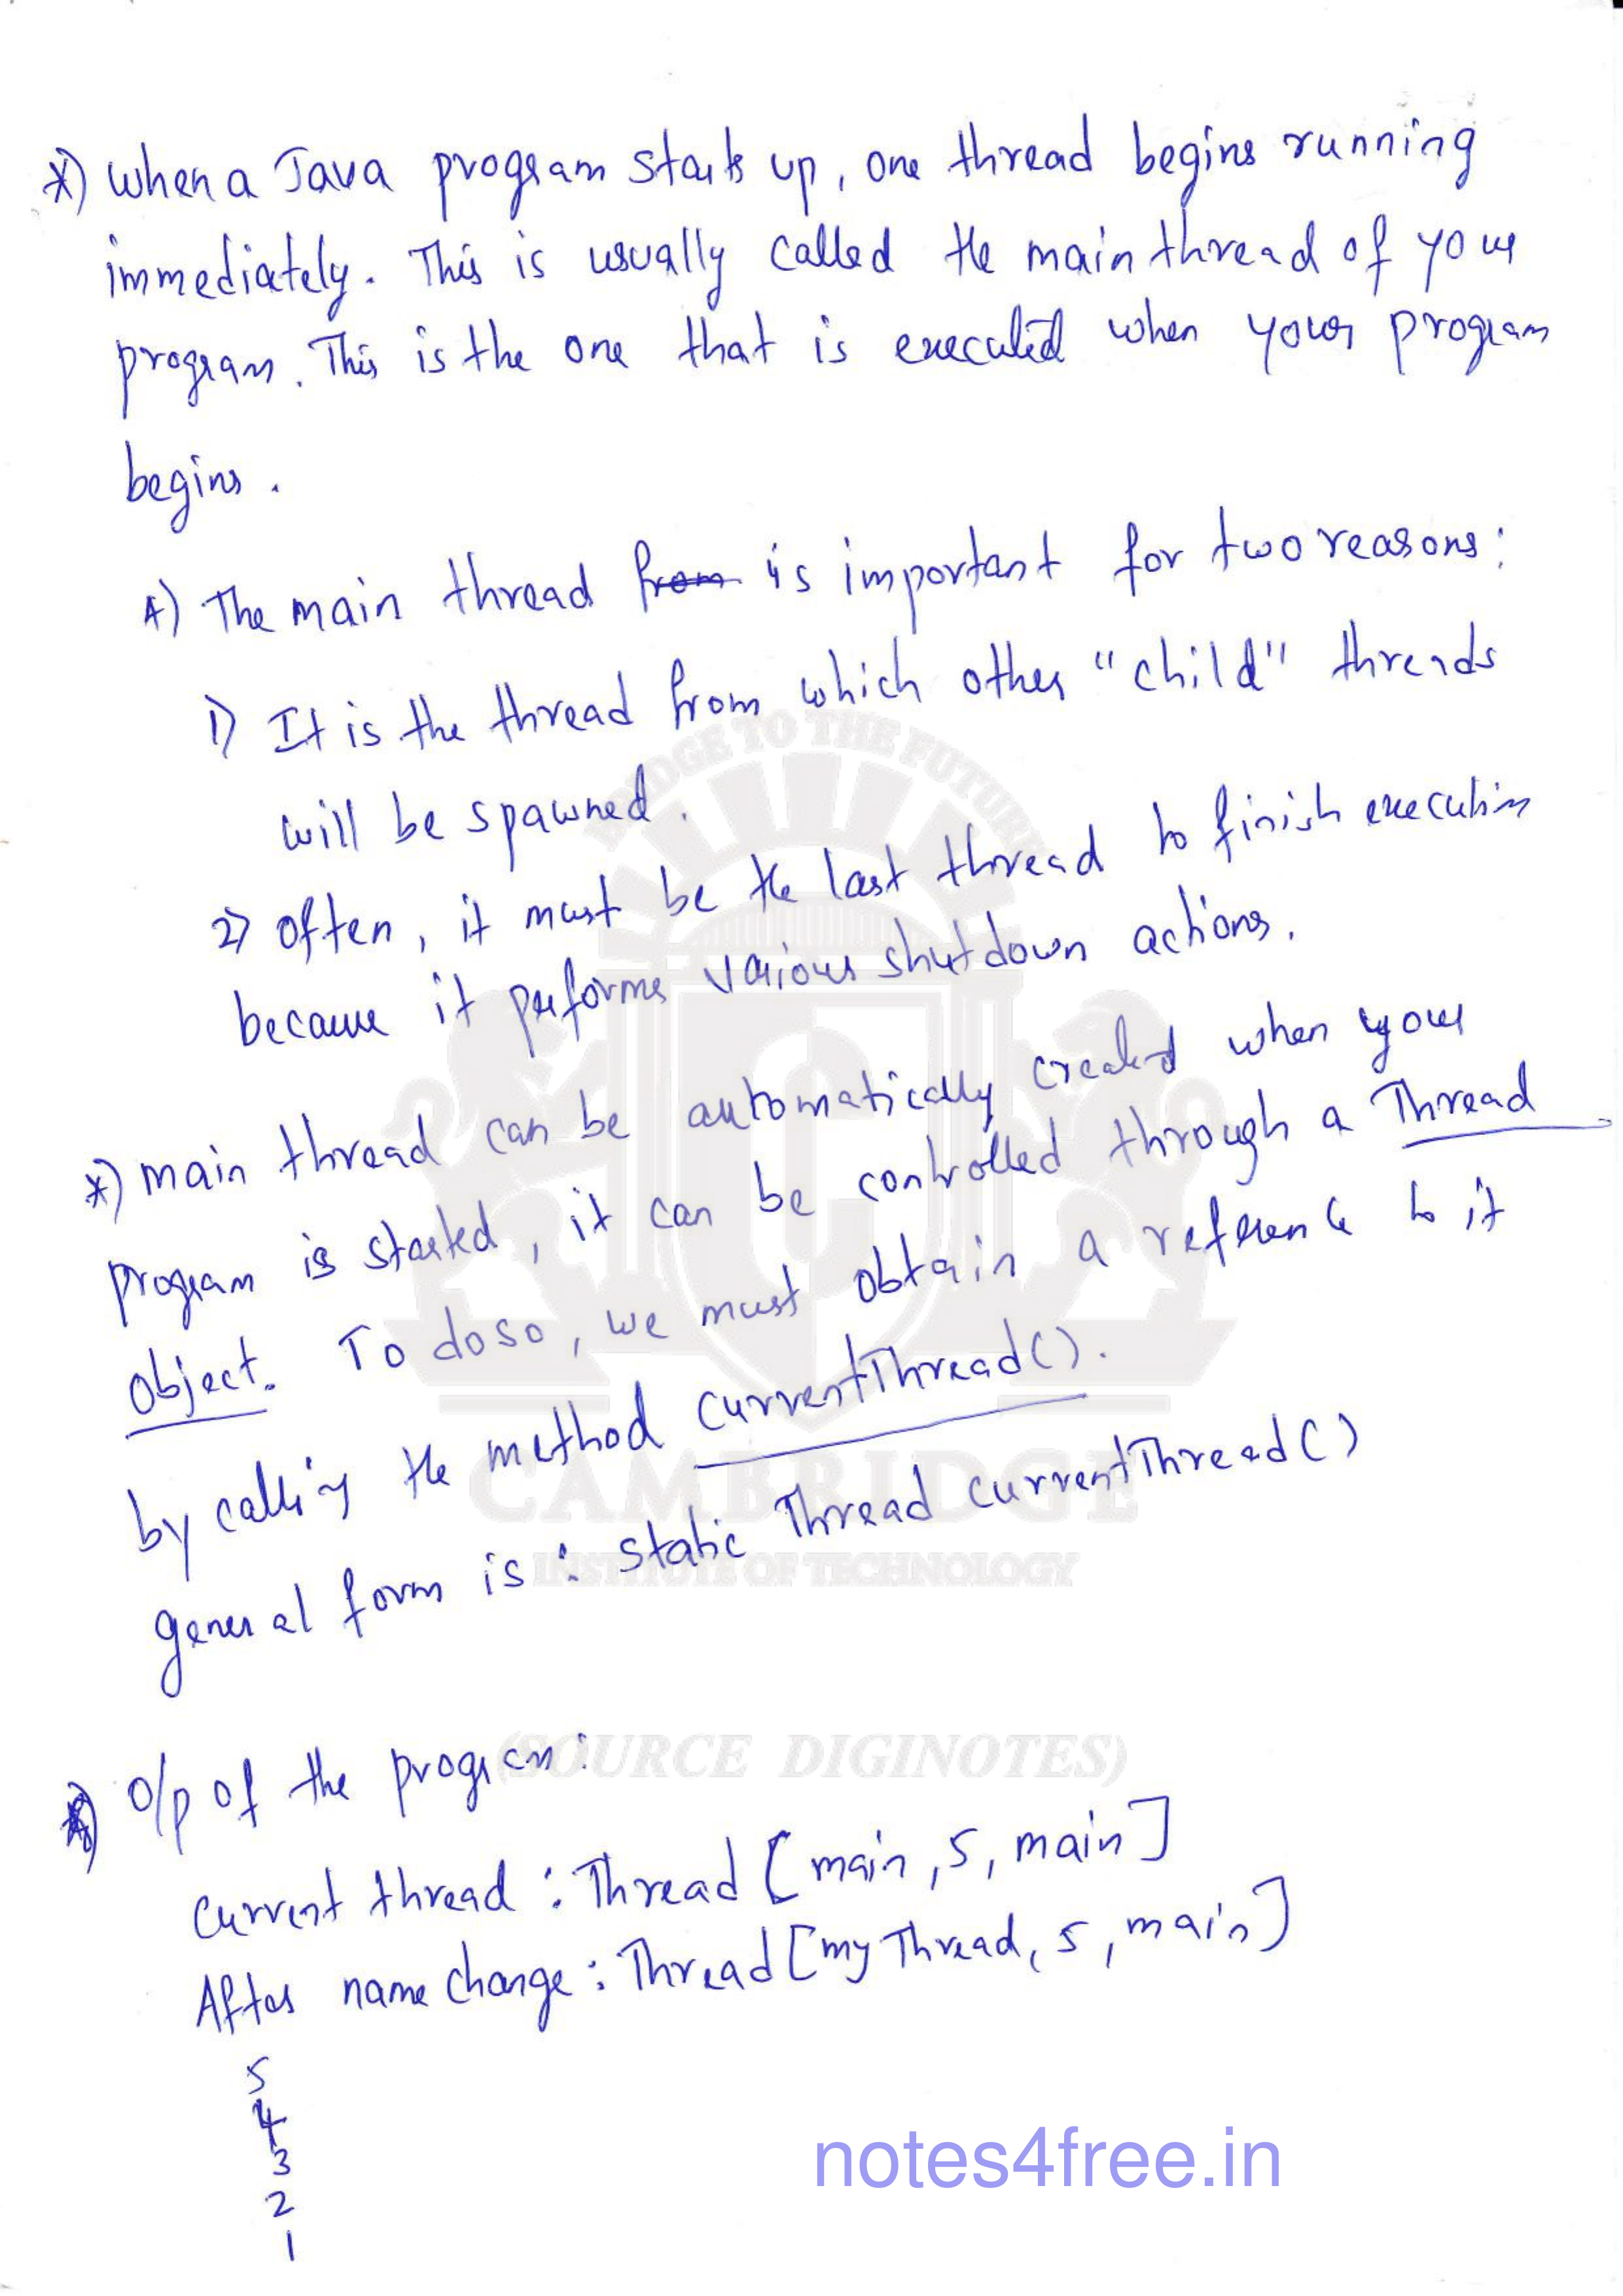 *) when a Java program starts up, one thread begins running
immediately. This is usually called the main thread of your
program. This is the one that is executed when your program
begins.
*) The main thread from is important for two reasons:
1) It is the thread from which other "child" threads
will be spawned.
2) often, it must be the last thread to finish execution
because it performs various shutdown actions.
*) main thread can be automatically created when your
program is started, it can be controlled through a Thread
object. To do so, we must obtain a reference to it
by calling the method currentThread().
general form is : static Thread currentThread()
*) O/p of the program:
Current thread : Thread [main, 5, main]
After name change : Thread [my Thread, 5, main]
5
4
3
2
1
BRIDGE TO THE FUTURE
CAMBRIDGE
INSTITUTE OF TECHNOLOGY
(SOURCE DIGINOTES)
notes4free.in